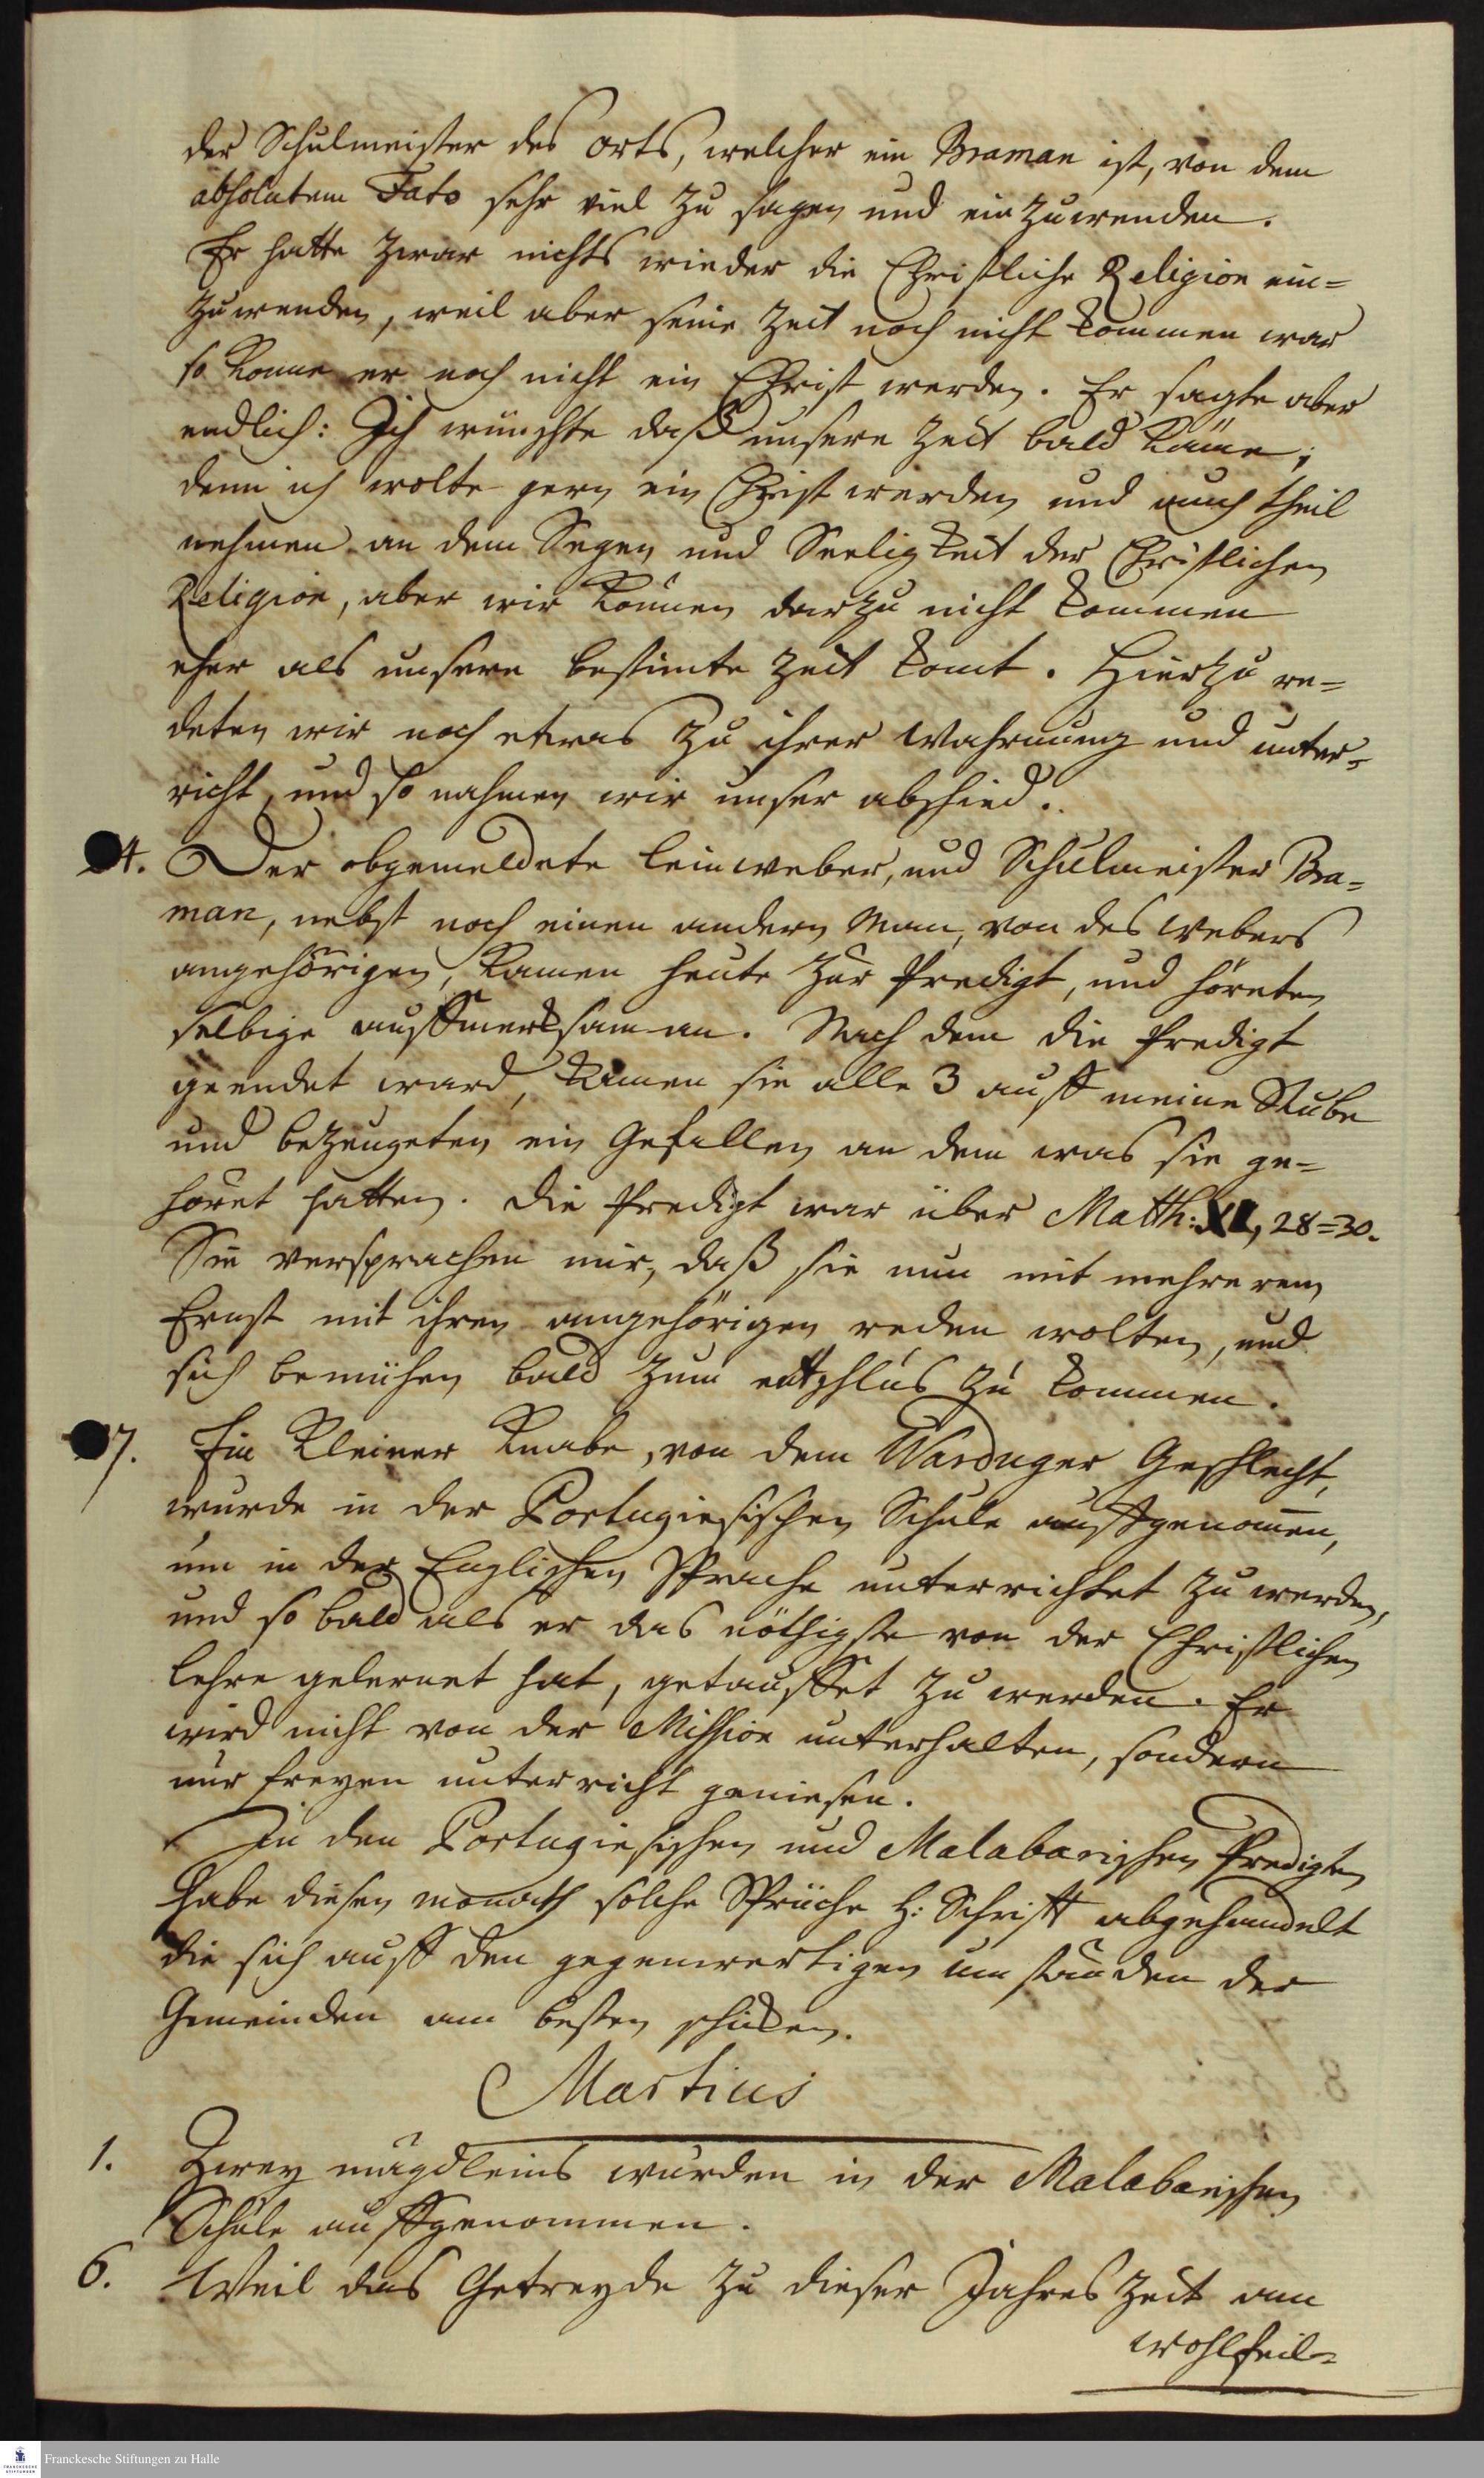 der Schulmeister des Orts, welcher ein Braman ist, von dem
absolutem Fato sehr viel zu sagen und einzuwenden.
Er hatte zwar nichts wieder die Christliche Religion ein=
zuwenden, weil aber seine Zeit noch nicht kommen war
so konne er noch nicht ein Christ werden. Er sagte aber
endlich: Ich wünschte daß unsere Zeit bald käme,
denn ich wolte gern ein Christ werden und auch theil
nehmen an dem Segen und Seeligkeit der Christlichen
Religion, aber wir können darzu nicht kommen
eher als unsere bestimte Zeit komt. Hierzu re=
deten wir noch etwas zu ihrer Wahrnung und unter=
richt, und so nahmen wir unser abschied.
4. Der obgemeldete leinweber, und Schulmeister Bra=
man, nebst noch einen andern Man, von des Webers
angehörigen, kamen heute zur Predigt, und höreten
selbige auffmerksam an. Nach dem die Predigt
geendet ward, kamen sie alle 3 auff meine Stube
und bezeugeten ein Gefallen an dem was sie ge=
höret hatten. Die Predigt war über Matth: XI, 28=30.
Sie versprachen mir, daß sie nun mit mehrerem
Ernst mit ihren angehörigen reden wolten, und
sich bemühen bald zum entschlus zu kommen.
7. Ein kleiner Knabe, von dem Warduger Geschlecht,
wurde in der Portugiesischen Schule auffgenomen,
um in der Englischen Sprache unterrichtet zu werden,
und so bald als er das nöthigste von der Christlichen
lehre gelernet hat, getauffet zu werden. Er
wird nicht von der Mission unterhalten, sondern
nur freyen unterricht geniesen.
In den Portugiesischen und Malabarischen Predigten
habe diesen monath solche Sprüche H: Schrifft abgehandelt
die sich auff den gegenwertigen umständen der
Gemeinden am besten schicken.
Martius
1. Zwey mägdleins wurden in der Malabarischen
Schule auffgenommen.
6. Weil das Getreyde zu dieser Jahres Zeit am
wohlfeil=
Franckesche Stiftungen zu Halle
FRANCKESCHE STIFTUNGEN